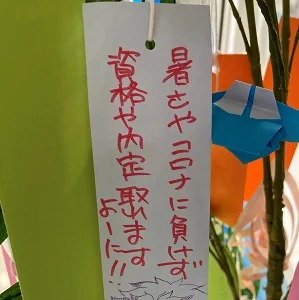 暑さやコロナに負けず
資格や内定取れます
よーに!!